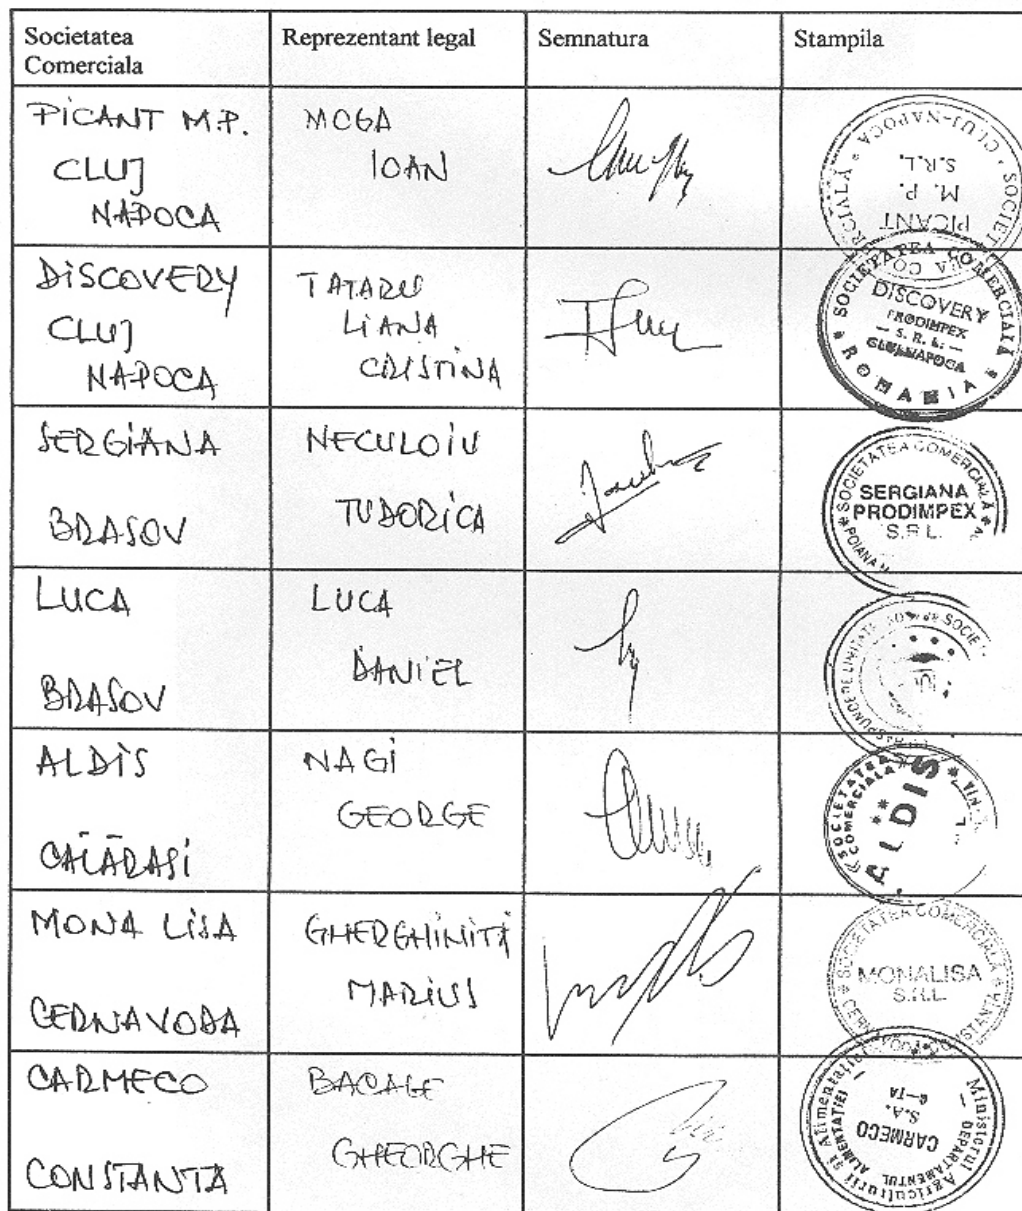 Societatea
Comerciala
Reprezentant legal
Semnatura
Stampila
PICANT M.P.
CLUJ
NAPOCA
MOGA
IOAN
SOCIETATEA COMERCIALĂ * CLUJ-NAPOCA *
PICANT
M. P.
S.R.L.
DISCOVERY
CLUJ
NAPOCA
TATARU
LIANA
CRISTINA
SOCIETATEA COMERCIALĂ * ROMANIA *
DISCOVERY
PRODIMPEX
— S. R. L. —
CLUJ-NAPOCA
SERGIANA
BRASOV
NECULOIU
TUDORICA
* SOCIETATEA COMERCIALĂ *
POIANA
SERGIANA
PRODIMPEX
S.R.L.
LUCA
BRASOV
LUCA
DANIEL
RASPUNDERE LIMITATA
SOCIE
ALDIS
CALĂRASI
NAGI
GEORGE
SOCIETATEA
COMERCIALA
ALDIS
MONA LISA
CERNAVODA
GHERGHINITĂ
MARIUS
* SOCIETATEA COMERCIALĂ *
MONALISA
S.R.L.
CARMECO
CONSTANTA
BACALE
GHEORGHE
Ministerul Agriculturii și Alimentației
DEPARTAMENTUL ALIMENTAȚIEI
CARMECO
S.A.
C-TA